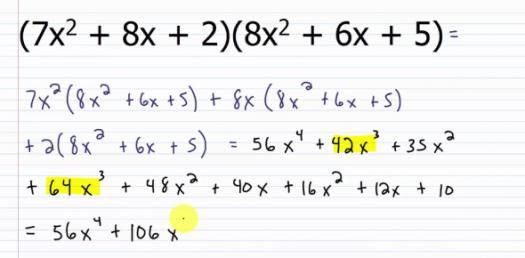 (7x² + 8x + 2)(8x² + 6x + 5) =
7x²(8x² + 6x + 5) + 8x(8x² + 6x + 5)
+ 2(8x² + 6x + 5) = 56x⁴ + 42x³ + 35x²
+ 64x³ + 48x² + 40x + 16x² + 12x + 10
= 56x⁴ + 106x